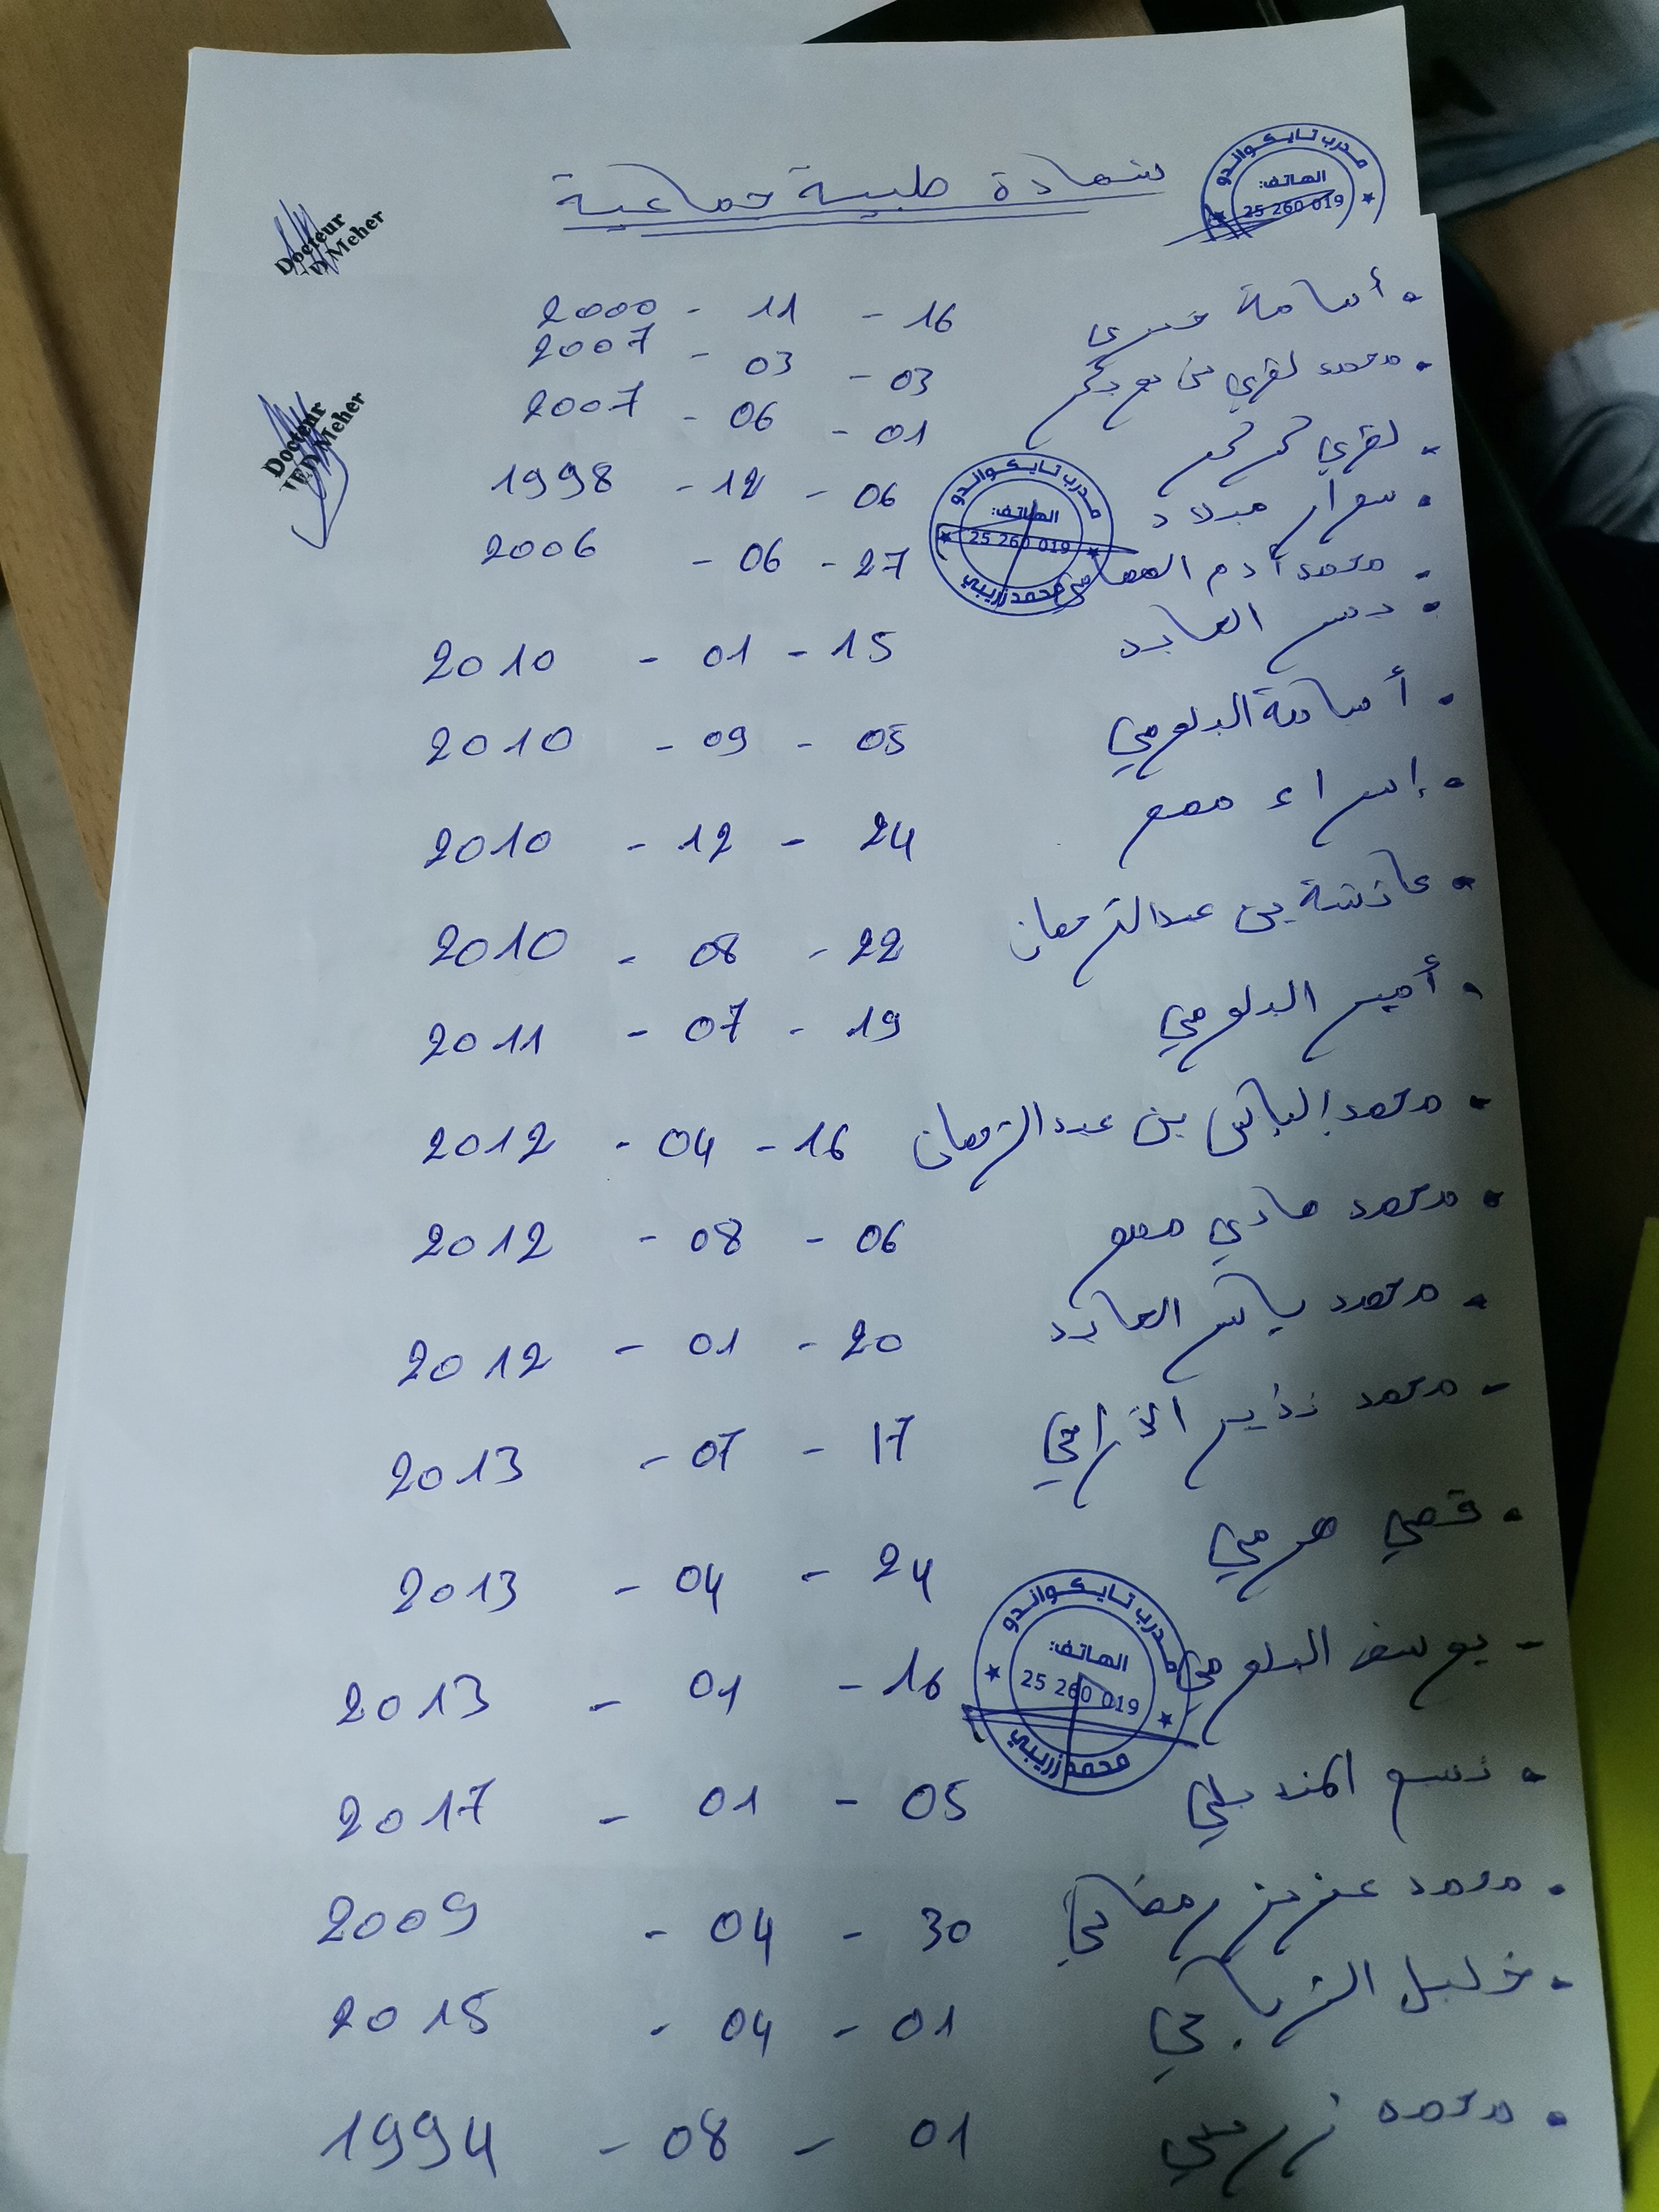 شهادة طبية جماعية
مدرب تايكواندو
الهاتف:
25 260 019
Docteur
Meher
أسامة 16 - 11 - 2000
محمد 03 - 03 - 2007
01 - 06 - 2007
Docteur
Meher
ميلاد 06 - 12 - 1998
مدرب تايكواندو
الهاتف:
25 260 019
محمد زريبي
محمد أدم 27 - 06 - 2006
العابد 15 - 01 - 2010
أسامة البلومي 05 - 09 - 2010
إسراء 24 - 12 - 2010
عائشة بن عبد الرحمان 22 - 08 - 2010
أمير البلومي 19 - 07 - 2011
محمد إلياس بن عبد الرحمان 16 - 04 - 2012
محمد هادي 06 - 08 - 2012
محمد ياسر العابد 20 - 01 - 2012
محمد نذير 17 - 07 - 2013
قصي 24 - 04 - 2013
يوسف البلومي 16 - 01 - 2013
مدرب تايكواندو
الهاتف:
25 260 019
محمد زريبي
05 - 01 - 2017
محمد عزيز 30 - 04 - 2009
خليل 01 - 04 - 2015
محمد زريبي 01 - 08 - 1994